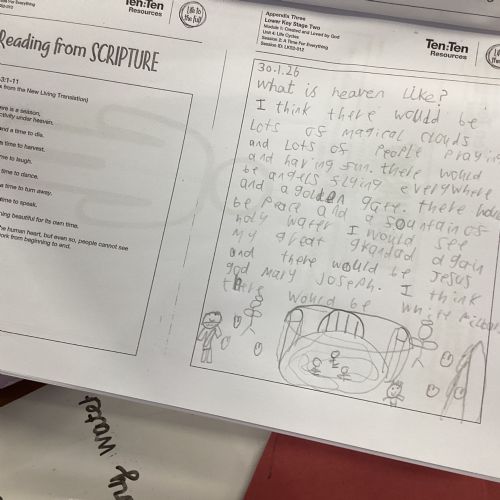 Ten:Ten
Resources
Life to the full
Reading from SCRIPTURE
3:1-11
from the New Living Translation)
ere is a season,
ctivity under heaven.
nd a time to die.
time to harvest.
me to laugh.
time to dance.
a time to turn away.
time to speak.
hing beautiful for its own time.
he human heart, but even so, people cannot see
work from beginning to end.
Appendix Three
Lower Key Stage Two
Module 1: Created and Loved by God
Unit 4: Life Cycles
Session 2: A Time For Everything
Session ID: LKS2-012
Ten:Ten
Resources
30.1.26
What is heaven like?
I think there would be
Lots of magical clouds
and Lots of people praying
and having fun. there would
be angels flying everywhere
and a golden gate. there would
be peace and a fountain of
holy water I would see
my great grandad again
and there would be Jesus
god Mary Joseph. I think
there would be white
holy water